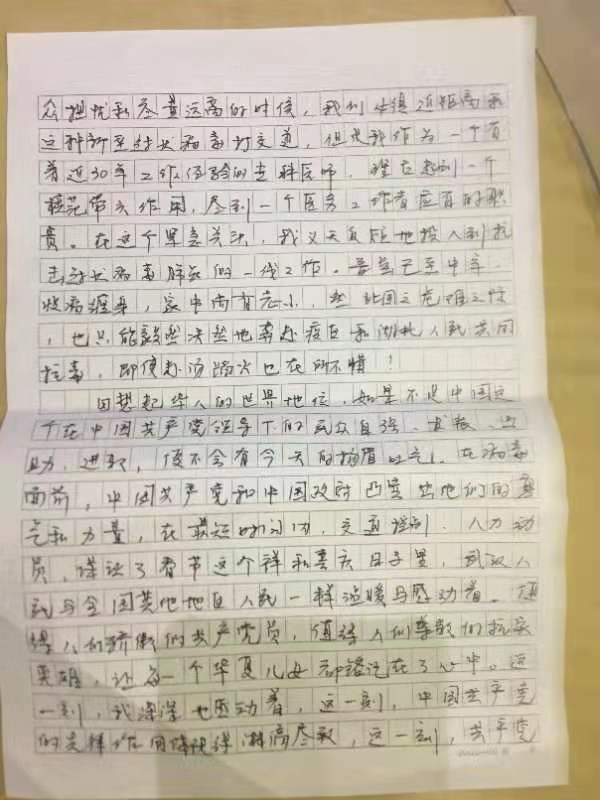 众担忧和尽量远离的时候，我们必须近距离和
这种新型冠状病毒打交道，但是我作为一个有
着近30年工作经验的专科医师，理应起到一个
模范带头作用，尽到一个医务工作者应有的职
责。在这个紧急关头，我义无反顾地投入到抗
击冠状病毒肺炎的一线工作。虽然已至中年，
疾病缠身，家中尚有老小，然 国之危难之时
，也只能毅然决然地奔赴疫区和湖北人民共同
抗毒，即使赴汤蹈火也在所不惜！
回想起华人的世界地位，如果不是中国这
个在中国共产党领导下的民众自强、 、
助、进取，便不会有今天的扬眉吐气。在病毒
面前，中国共产党和中国政府凸显出他们的勇
气和力量，在最短时间内，交通管制、人力动
员，牺牲了春节这个祥和喜庆日子里，武汉人
民与全国其他地区人民一样温暖与感动着。值
得人们骄傲的共产党员，值得人们尊敬的抗疫
英雄，让每一个华夏儿女都铭记在了心中。这
一刻，我深深地感动着，这一刻，中国共产党
的先锋作用体现得淋漓尽致，这一刻，共产党